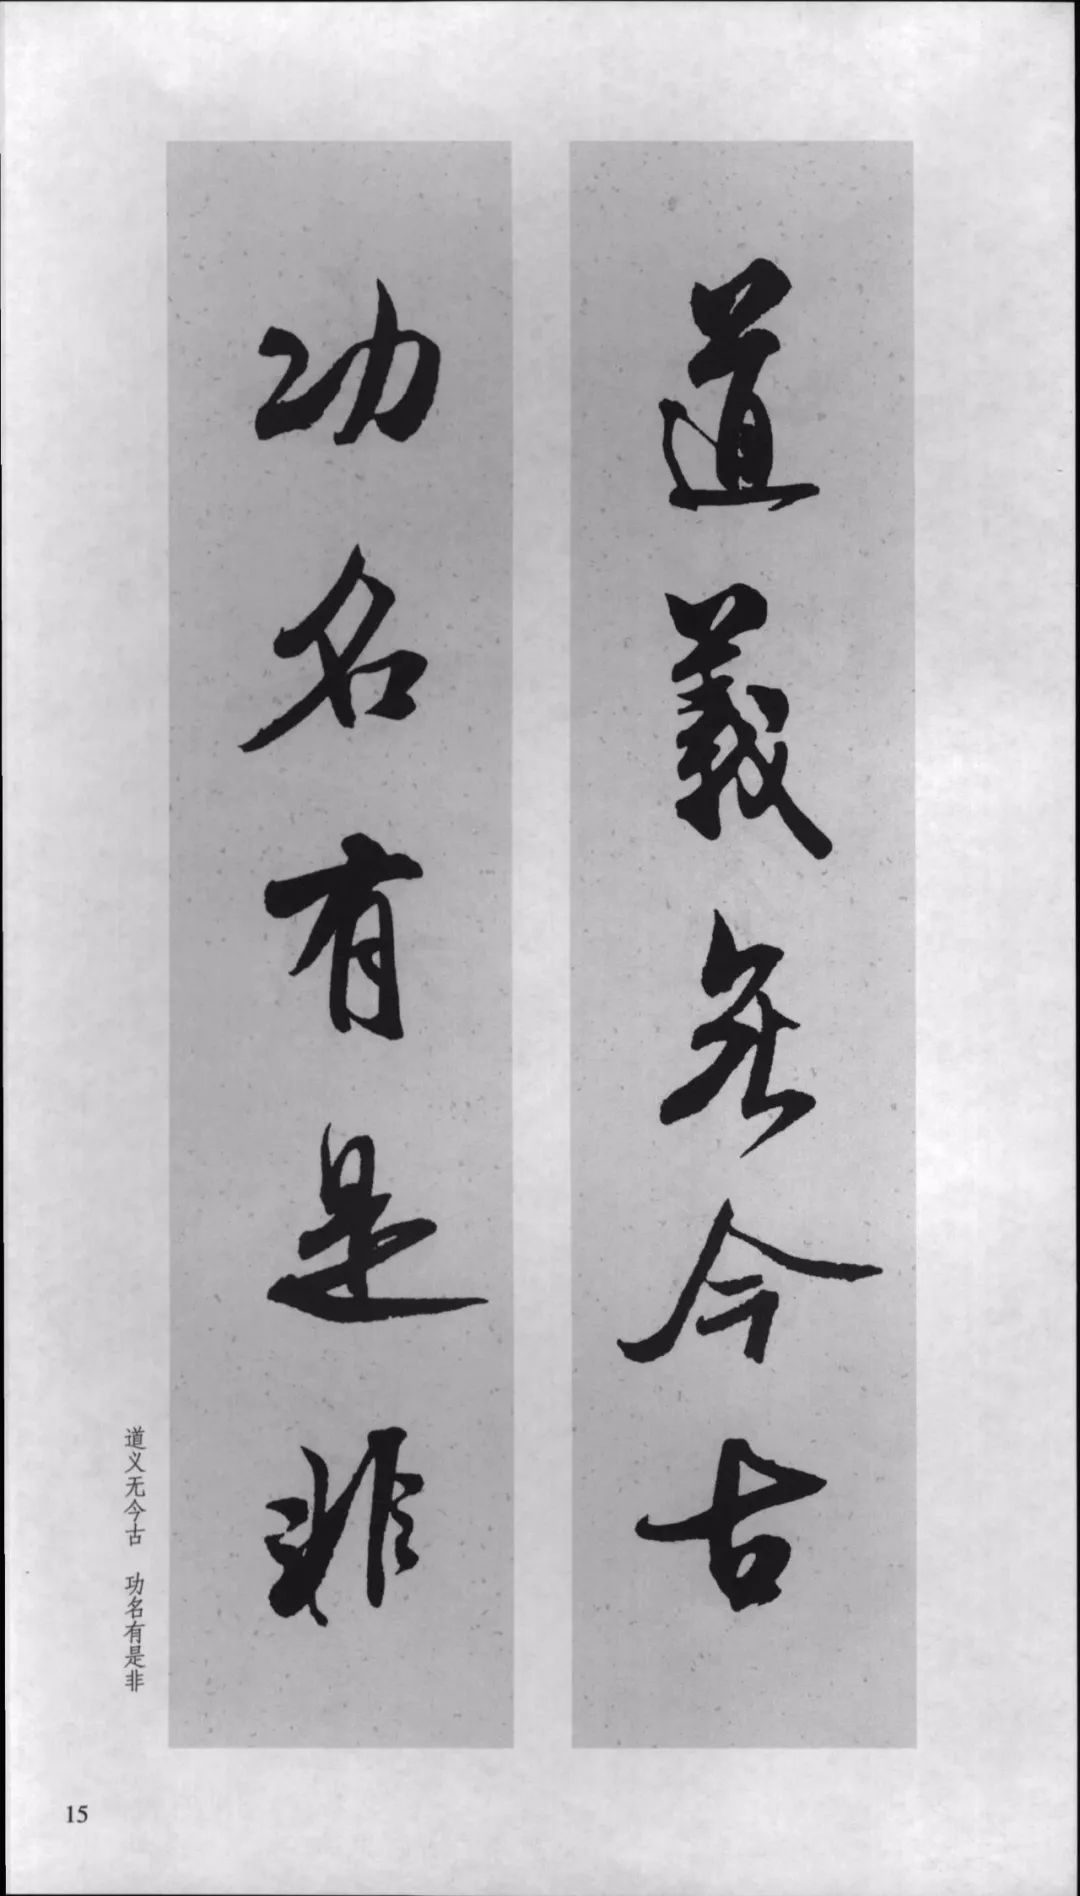 道義无今古
功名有是非
道义无今古 功名有是非
15